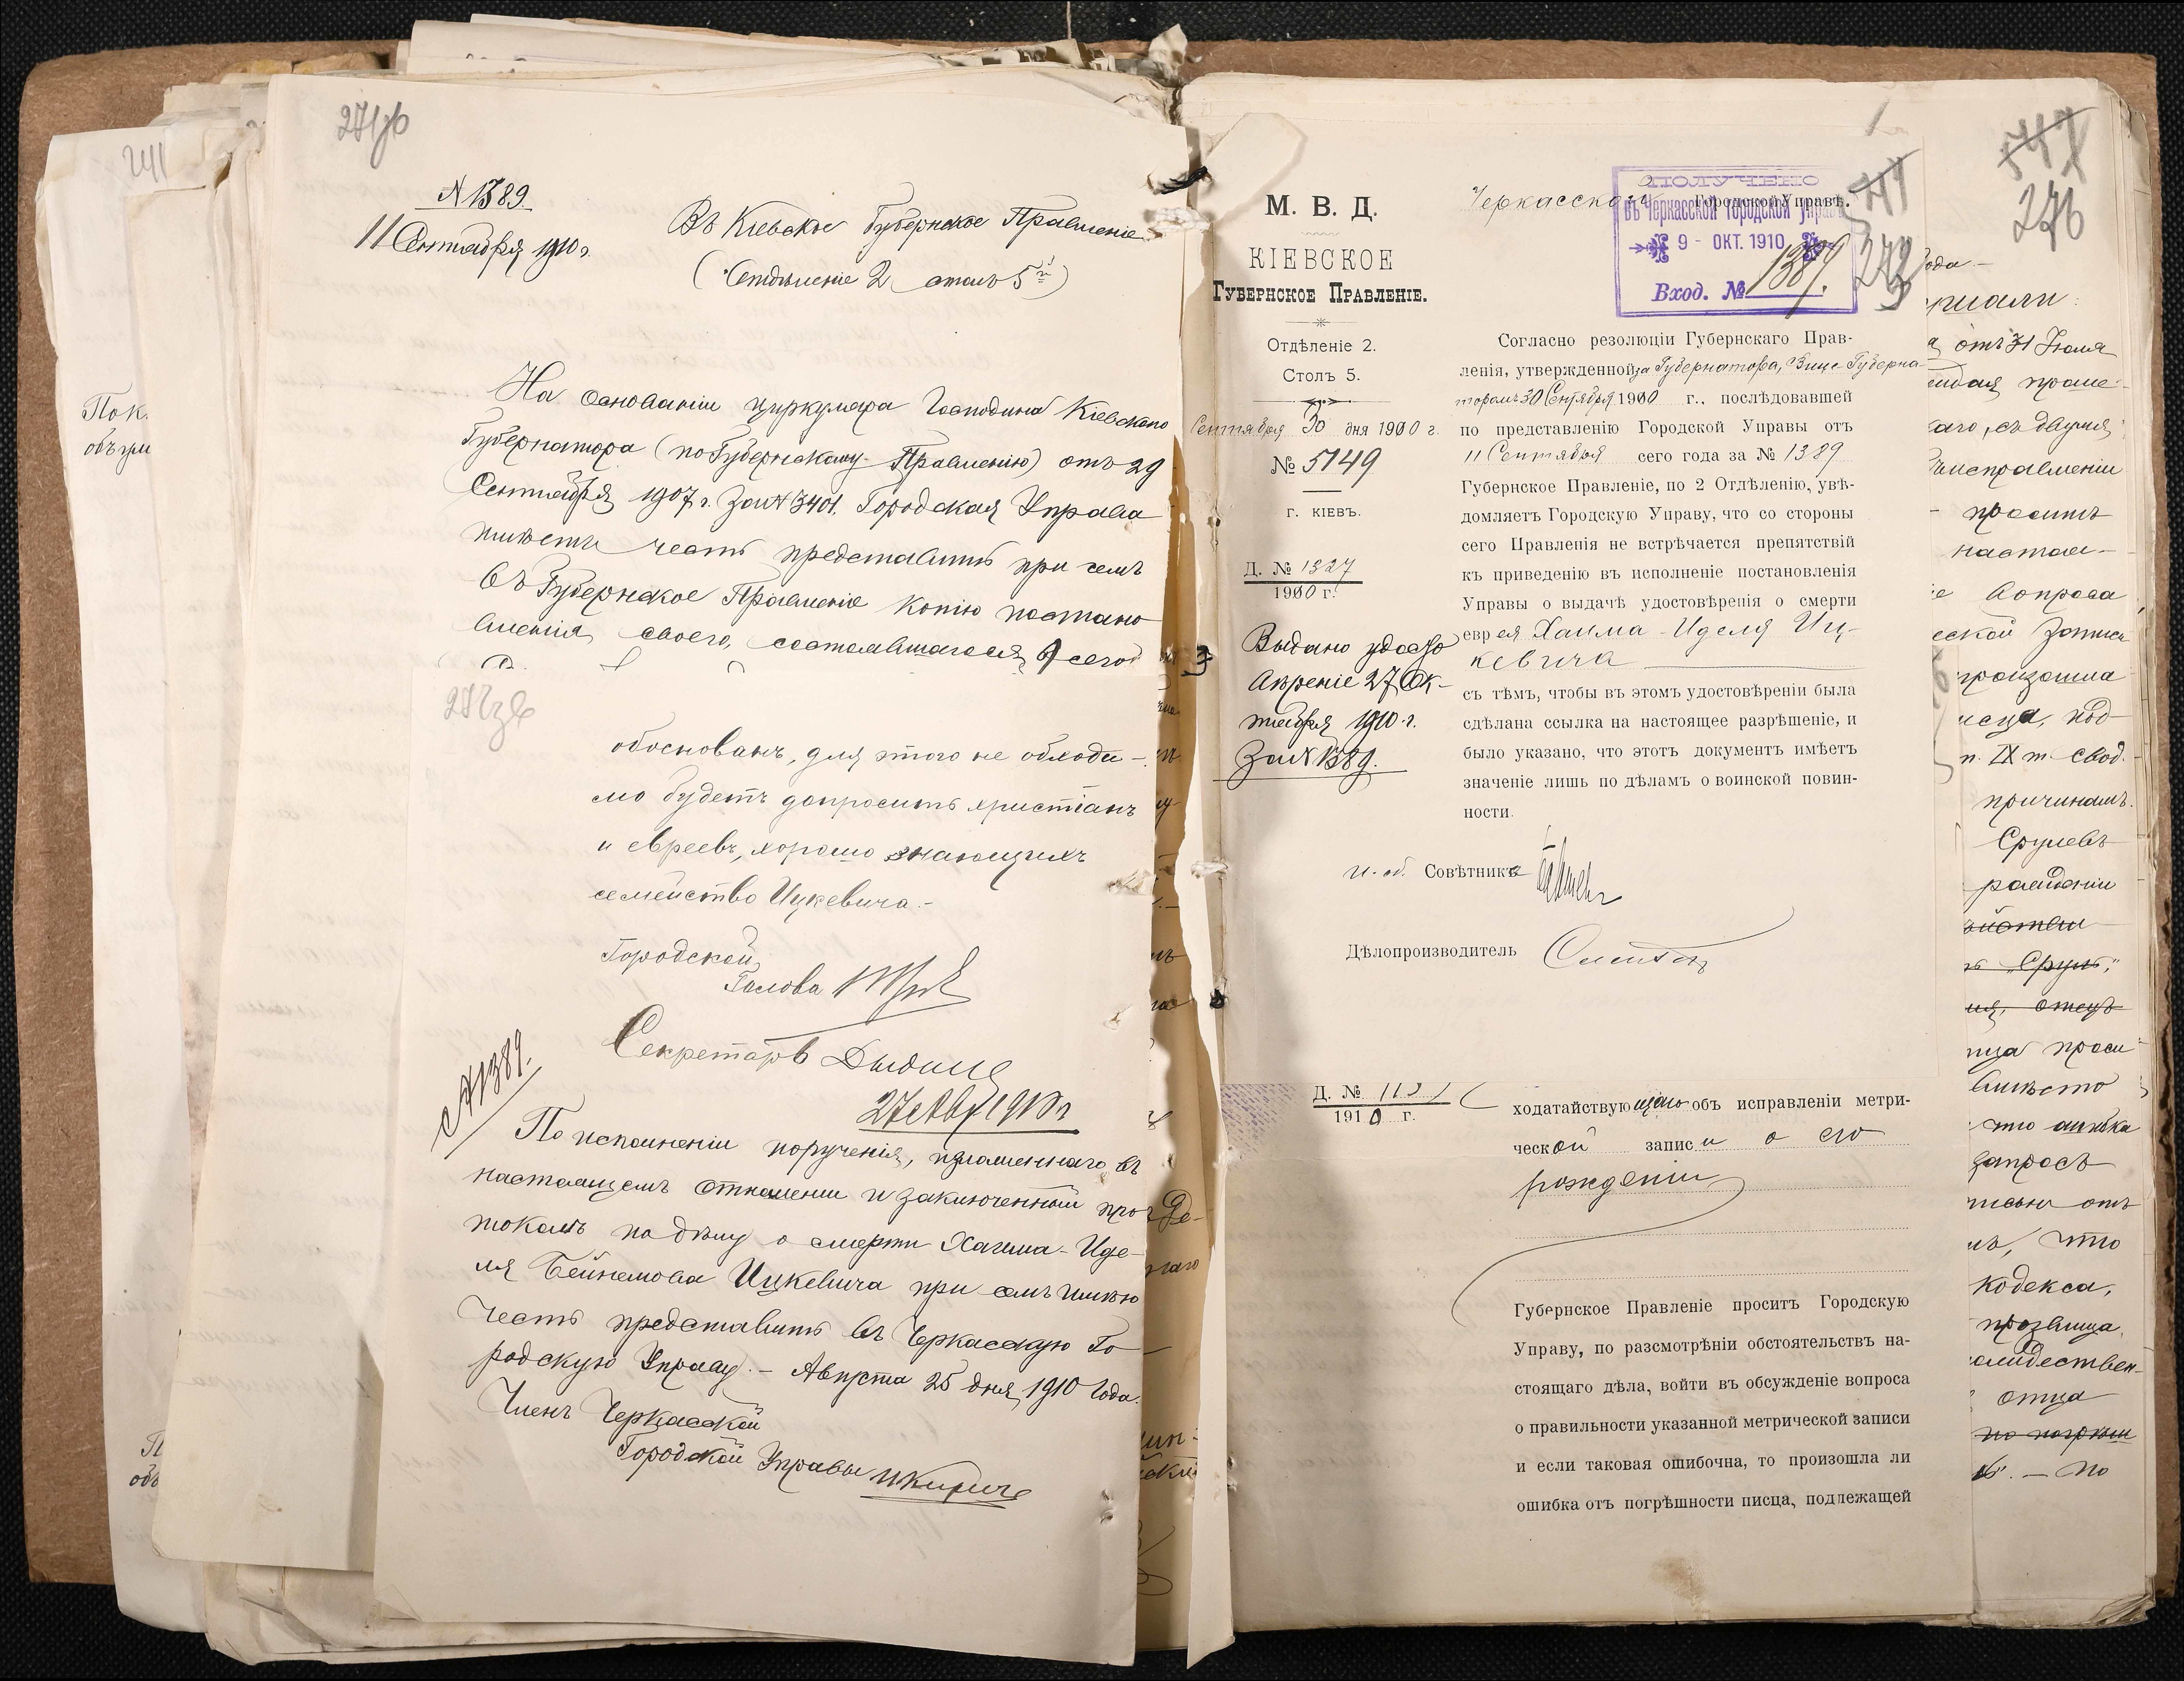 241
Пок.
объяи
271об
N 1389.
11 Сентября 1910 г.
Въ Кіевское Губернское Правленіе
(Отдѣленіе 2 столъ 5й)
На основаніи циркуляра Господина Кіевскаго
Губернатора (по Губернскому Правленію) отъ 29
Сентября 1907 г. за N 3401. Городская Управа
имѣетъ честь представить при семъ
въ Губернское Правленіе копію постано
вленія своего, состоявшагося 9 сего
обоснованъ, для этого необходи-
мо будетъ допросить христіанъ
и евреевъ, хорошо знающихъ
семейство Ицкевича.-
Городской
Голова
Секретарь
27 Авг 1910 г
N 1389.
По исполненіи порученія, изложеннаго въ
настоящемъ отношеніи и заключенный про
токолъ по дѣлу о смерти Хаима-Иде-
ля Бейнемова Ицкевича при семъ имѣю
честь представить въ Черкасскую Го-
родскую Управу.- Августа 25 дня 1910 года.
Членъ Черкасской
Городской Управы
М. В. Д.
КІЕВСКОЕ
ГУБЕРНСКОЕ ПРАВЛЕНІЕ.
Отдѣленіе 2.
Столъ 5.
Сентября 30 дня 1910 г.
№ 5149
г. КІЕВЪ.
Д. № 1327
1910 г.
Выдано удосто
вѣреніе 27 Ок-
тября 1910 г.
За N 1389.
Черкасской Городской Управѣ.
ПОЛУЧЕНО
въ Черкасской городской управѣ
9 - ОКТ. 1910
Вход. № 1389.
273
Согласно резолюціи Губернскаго Прав-
ленія, утвержденной за Губернатора, Вице-Губерна-
торомъ 30 Сентября 1910 г., послѣдовавшей
по представленію Городской Управы отъ
11 Сентября сего года за № 1389
Губернское Правленіе, по 2 Отдѣленію, увѣ-
домляетъ Городскую Управу, что со стороны
сего Правленія не встрѣчается препятствій
къ приведенію въ исполненіе постановленія
Управы о выдачѣ удостовѣренія о смерти
еврея Хаима-Иделя Иц-
кевича
съ тѣмъ, чтобы въ этомъ удостовѣреніи была
сдѣлана ссылка на настоящее разрѣшеніе, и
было указано, что этотъ документъ имѣетъ
значеніе лишь по дѣламъ о воинской повин-
ности.
И. об. Совѣтника
Дѣлопроизводитель
Д. № 1131
1910 г.
ходатайствующаго объ исправленіи метри-
ческой записи о его
рожденіи
Губернское Правленіе проситъ Городскую
Управу, по разсмотрѣніи обстоятельствъ на-
стоящаго дѣла, войти въ обсужденіе вопроса
о правильности указанной метрической записи
и если таковая ошибочна, то произошла ли
ошибка отъ погрѣшности писца, подлежащей
276
ода-
отъ 31 Іюля
аго, съ двумя
исправленіи
- проситъ
настоя-
вопроса
еской записи
произошла
исца, под-
п. IX т. Свод.
причинамъ.
Срулевъ
рожденіи
"Сруль",
ия, отецъ
вмѣсто
что ошибка
запросъ
ъ, что
кодекса,
прозвища.
отца
- по